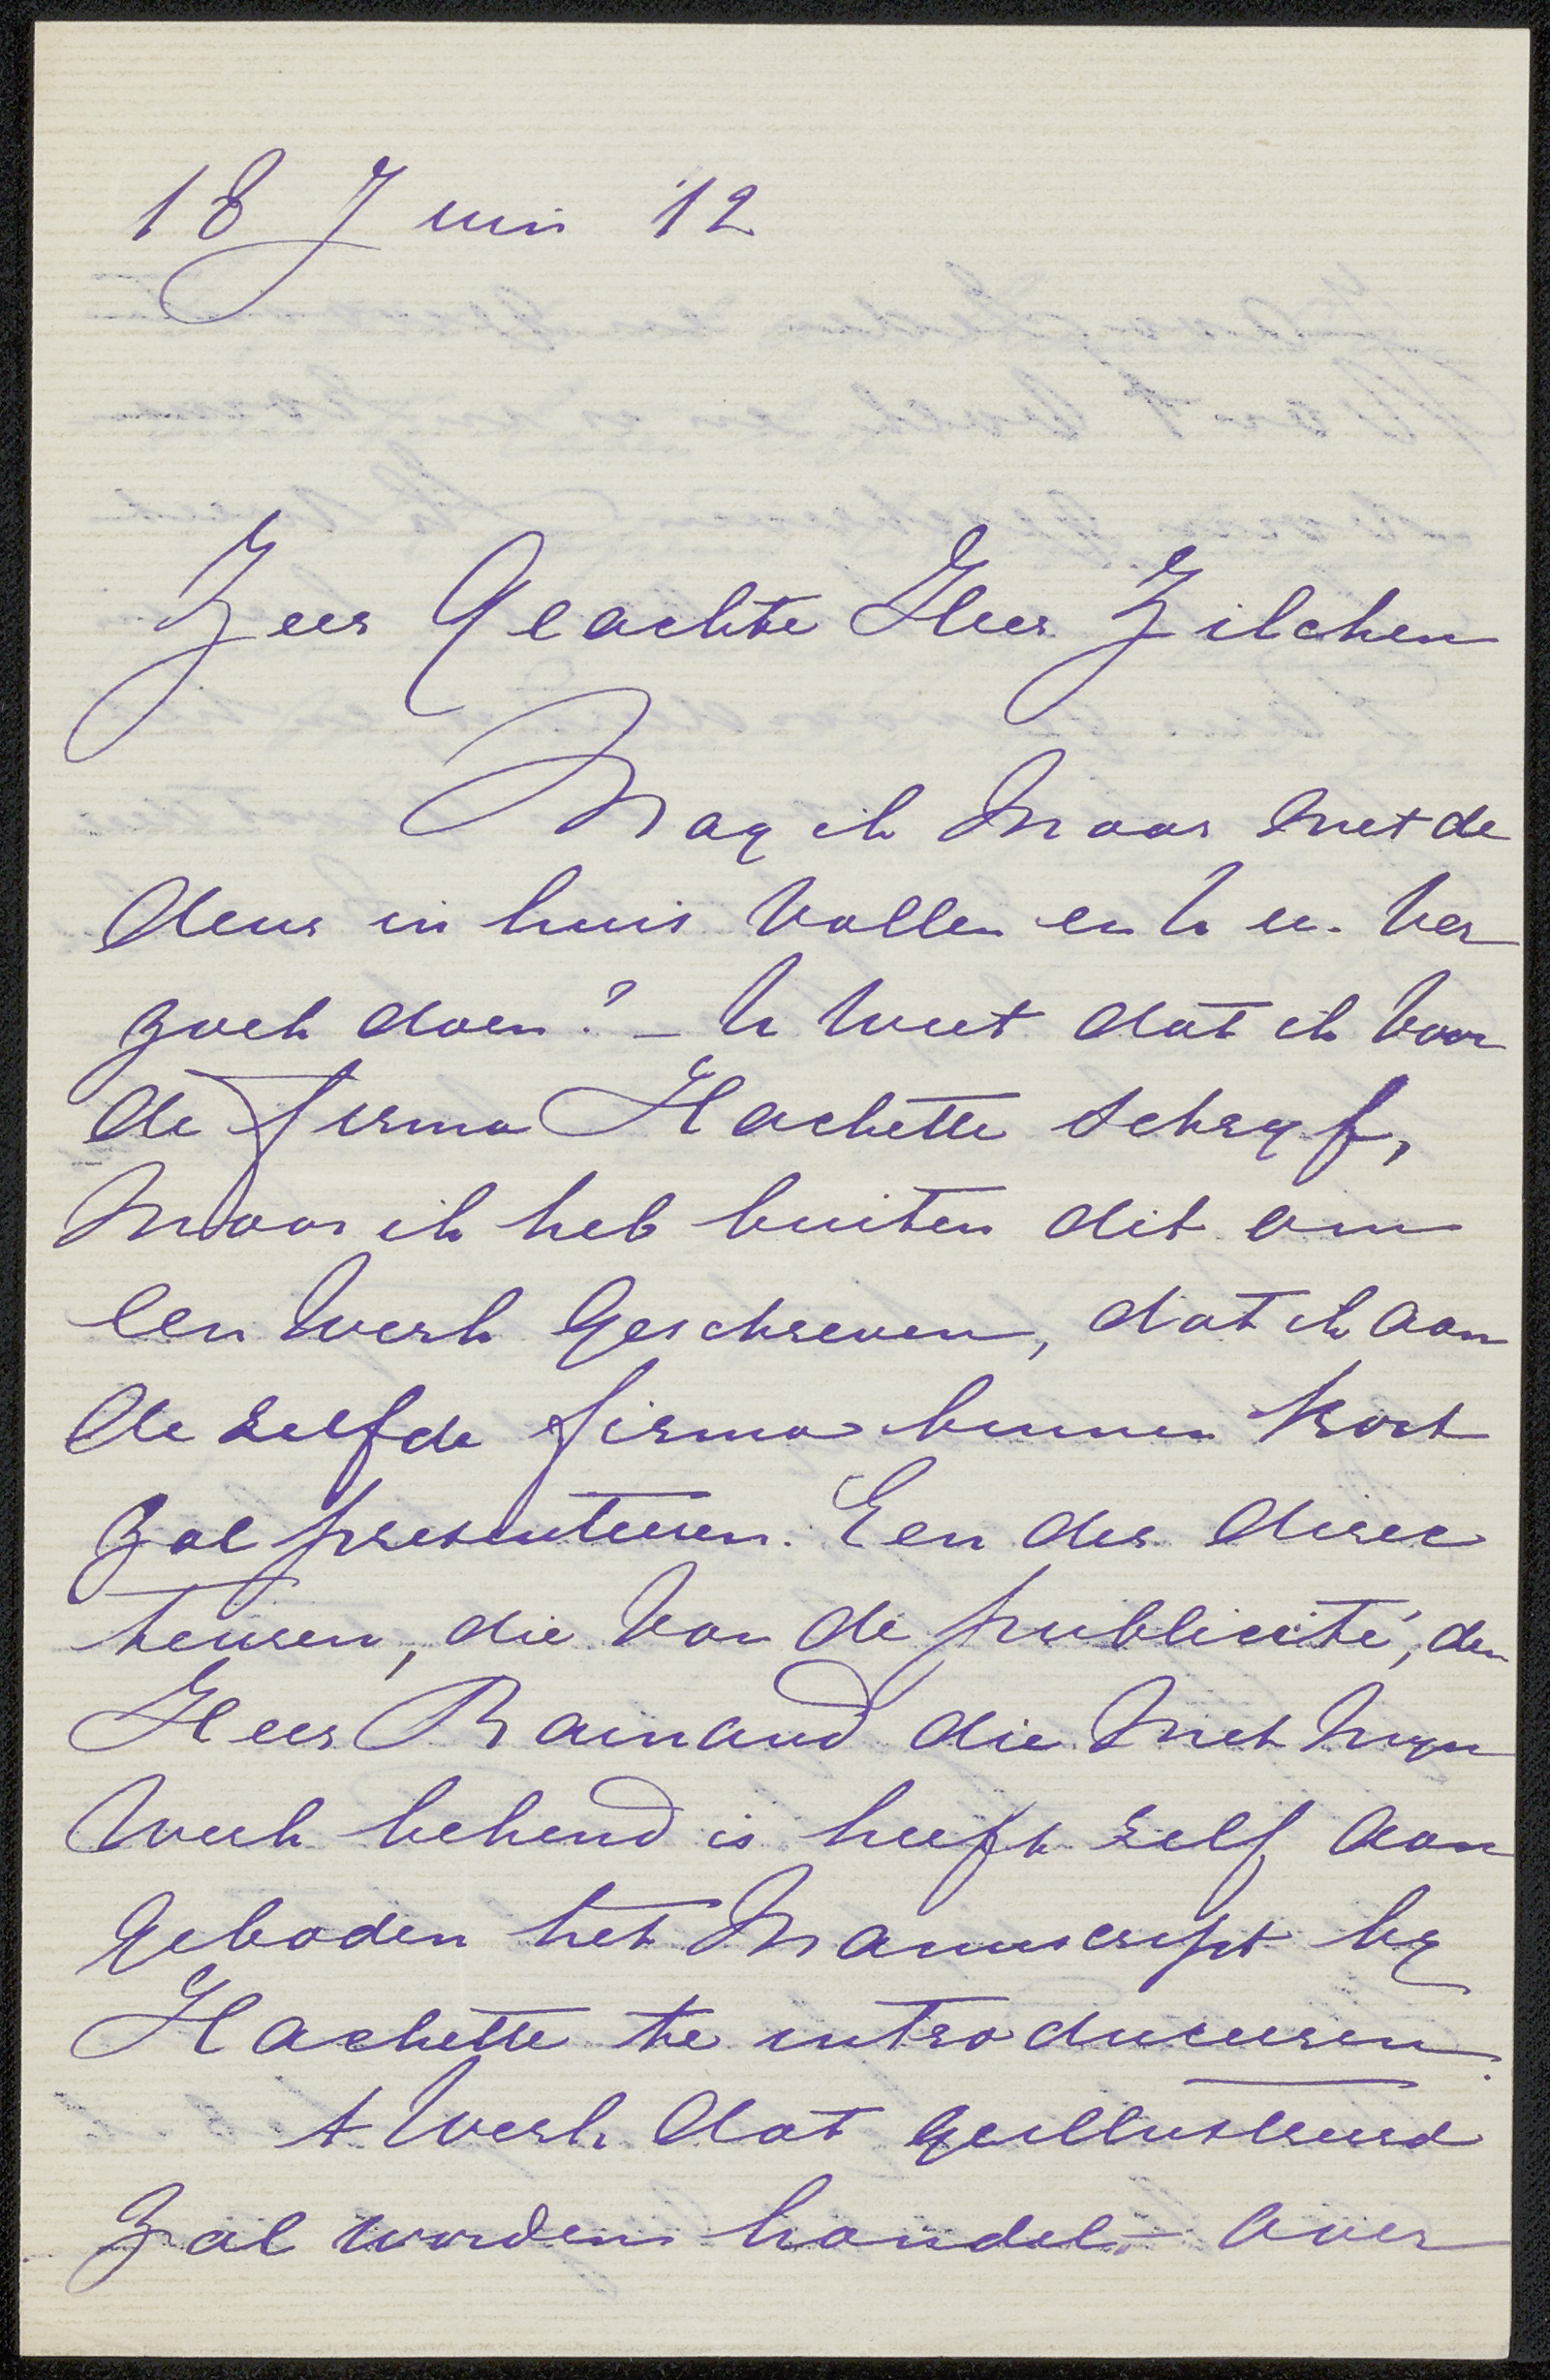 18 Juni '12
Zeer Geachte Heer Zilcken
Mag ik maar met de
deur in huis vallen en U een ver
zoek doen? – U weet dat ik voor
de firma Hachette schryf,
maar ik heb buiten dit om
een werk geschreven, dat ik aan
de zelfde firma binnen kort
zal presenteeren. Een der direc
teuren, die van de publicité, den
Heer Rainaud die met myn
werk bekend is heeft zelf aan
geboden het Manuscript by
Hachette te introduceeren.
t Werk dat geillustreerd
zal worden handelt over